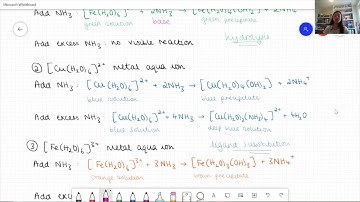 Microsoft Whiteboard
Add NH₃ : [Fe(H₂O)₆]²⁺ + 2NH₃ → [Fe(H₂O)₄(OH)₂] + 2NH₄⁺
green solution base green precipitate
Add excess NH₃ : no visible reaction hydrolysis
② [Cu(H₂O)₆]²⁺ metal aqua ion
Add NH₃ : [Cu(H₂O)₆]²⁺ + 2NH₃ → [Cu(H₂O)₄(OH)₂] + 2NH₄⁺
blue solution blue precipitate
Add excess NH₃ : [Cu(H₂O)₆]²⁺ + 4NH₃ → [Cu(H₂O)₂(NH₃)₄]²⁺ + 4H₂O
blue solution deep blue solution
③ [Fe(H₂O)₆]³⁺ metal aqua ion ligand substitution
Add NH₃ : [Fe(H₂O)₆]³⁺ + 3NH₃ → [Fe(H₂O)₃(OH)₃] + 3NH₄⁺
orange solution brown precipitate
Add